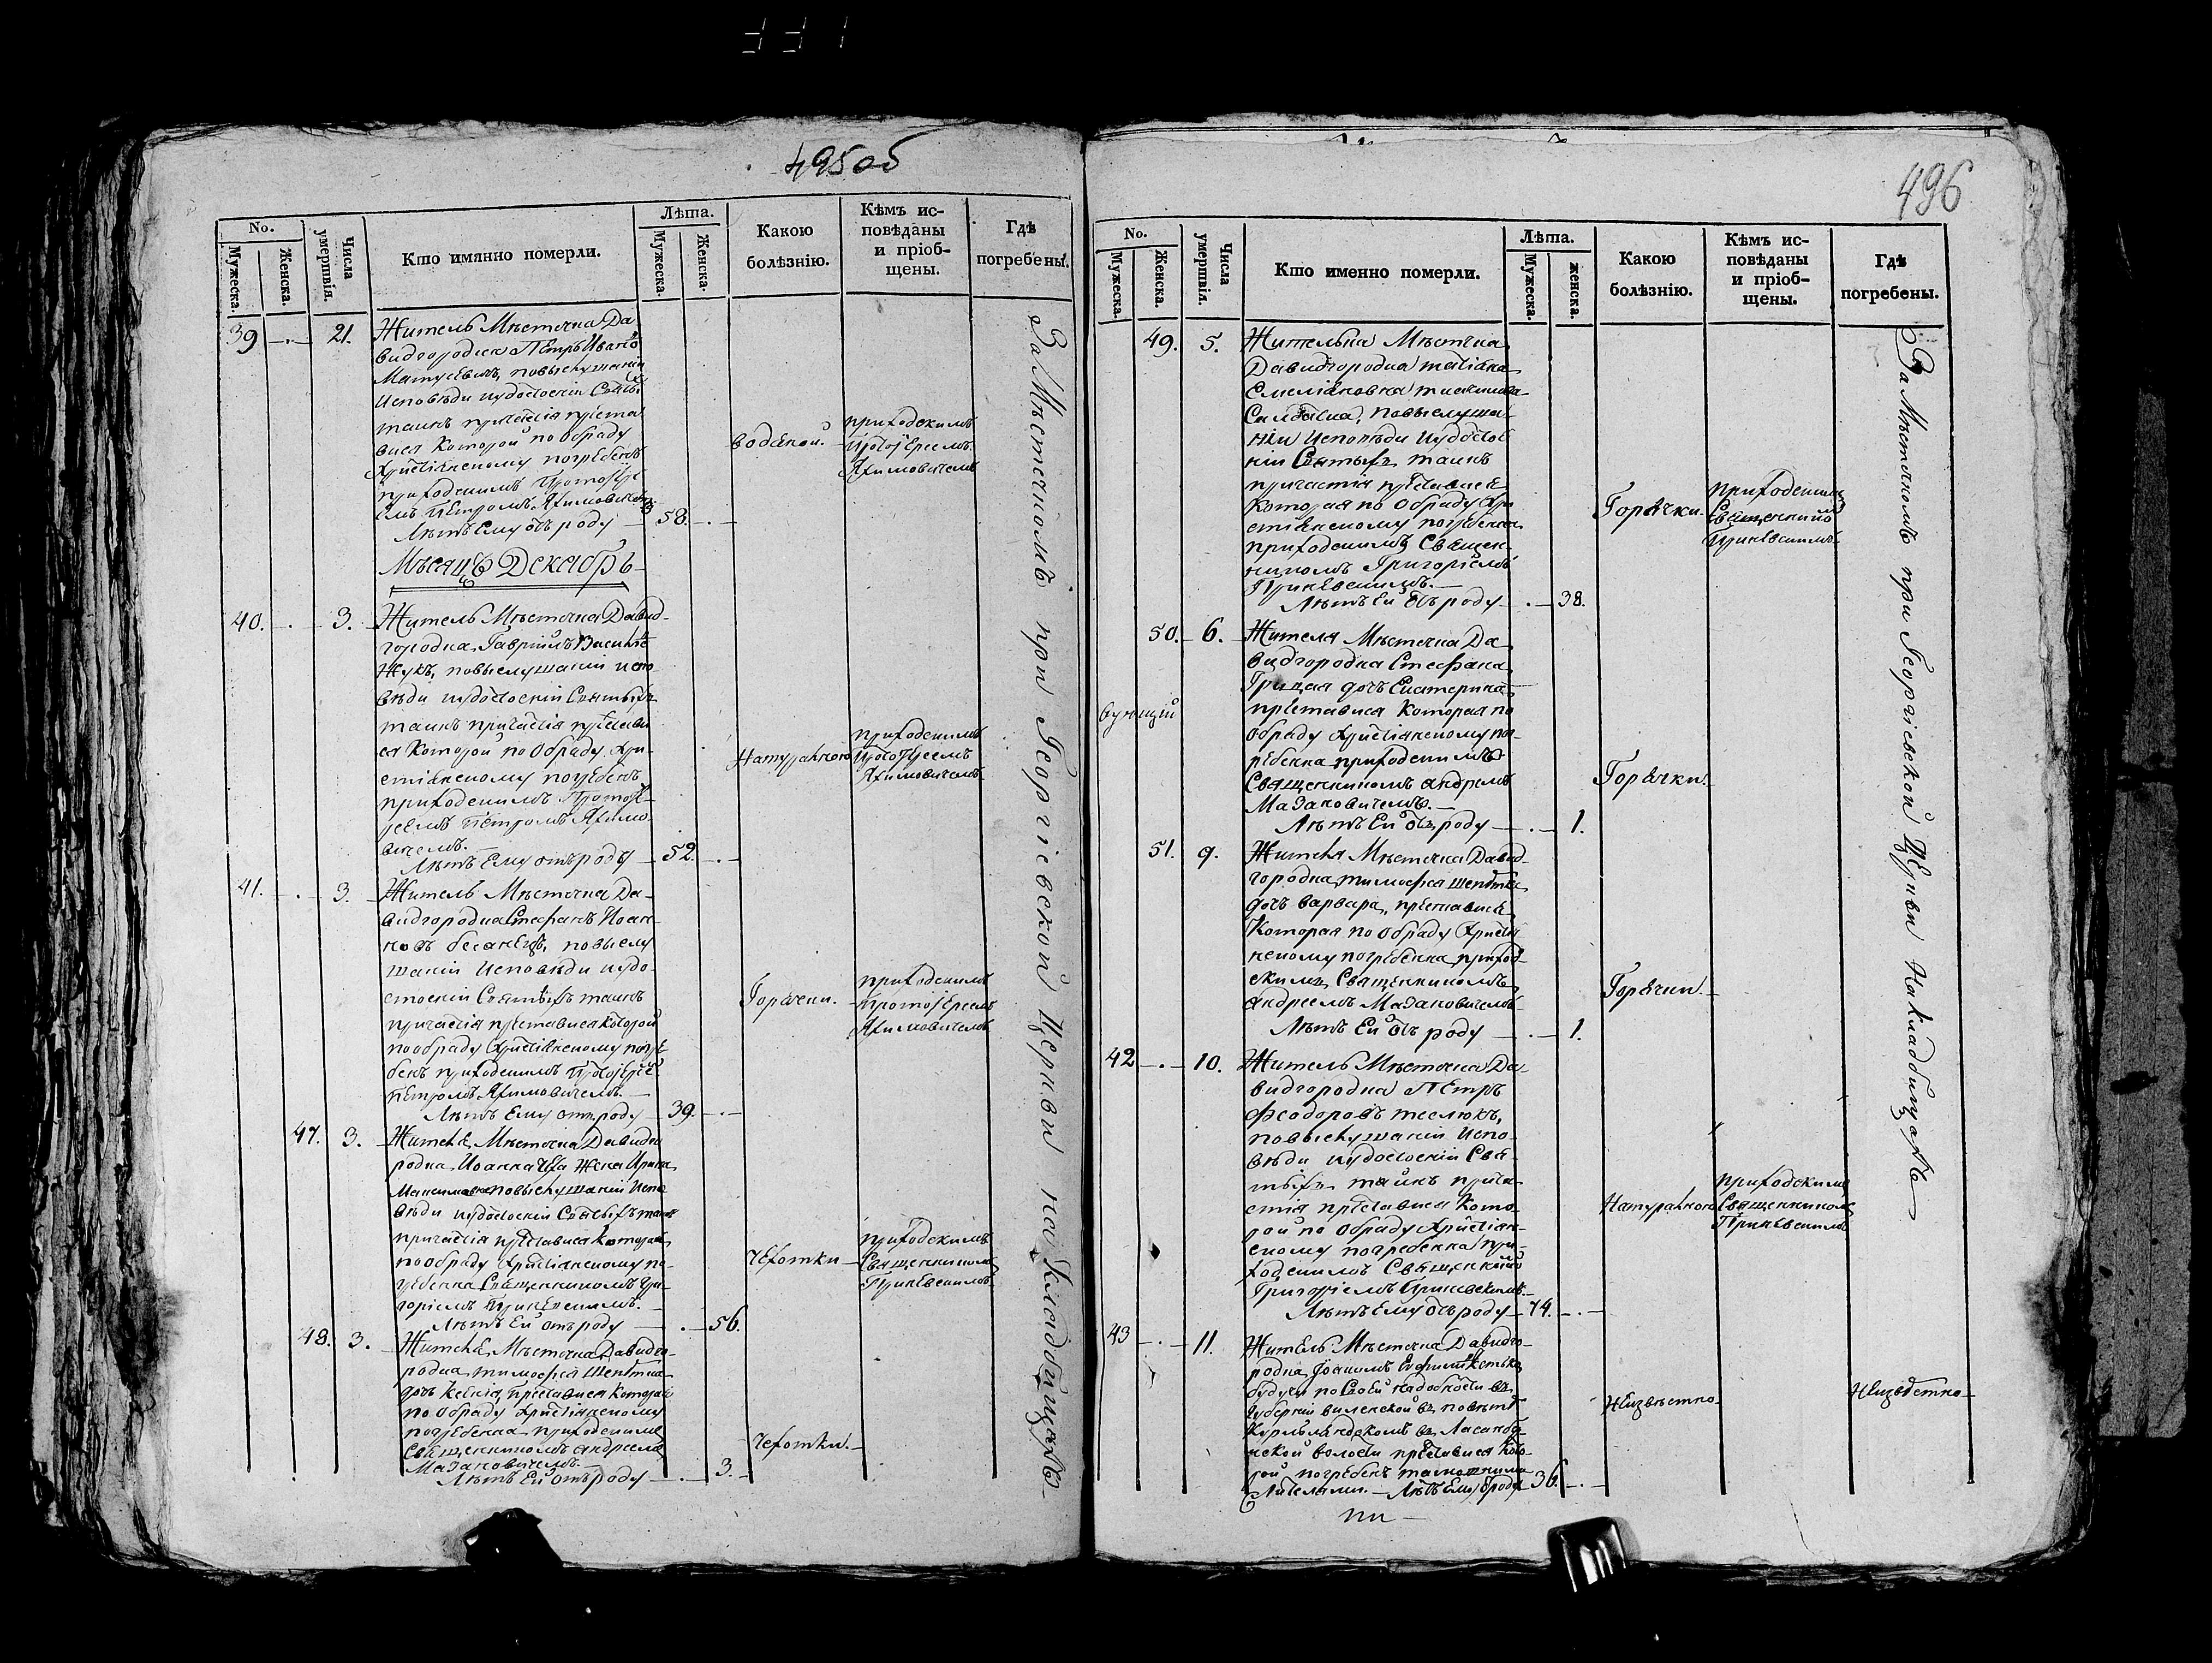 495об
No.
Мужеска.
Женска.
Числа умершвія.
Кто имянно померли.
Лѣта.
Мужеска.
Женска.
Какою болѣзнію.
Кѣмъ исповѣданы и пріобщены.
Гдѣ погребены.
39 21.
Житель Мѣстечка Да
видгородка Петръ Ивано
Матусевичъ, повыслушаніи
Исповѣди иудостоеніи Святы
таинъ причастія преста
вися Которой по Обряду
Христіянскому погребенъ
приходскимъ Протоіере
емъ Петромъ Якимовичемъ
Лѣтъ Ему отъ роду 58.
водяной.
приходскимъ
Протоіереемъ
Якимовичемъ
Мѣсяцъ Декабрь
40. 3.
Житель Мѣстечка Давид-
городка Гавріилъ Василіе
Жукъ, повыслушаніи испо
вѣди иудостоеніи Святыхъ
таинъ причастія престави
ся Которой по Обряду Хри-
стіянскому погребенъ
приходскимъ Протоіе-
реемъ Петромъ Якимо-
вичемъ.
Лѣтъ Ему отъ роду 52.
Натурально
приходскимъ
Протоіереемъ
Якимовичемъ
41. 3.
Житель Мѣстечка Да-
видгородка Стефанъ Иоан-
новъ повыслу
шаніи Исповѣди иудо-
стоеніи Святыхъ таинъ
причастія преставися которой
по обряду Христіянскому погре
бенъ приходскимъ Протоіерее
Петромъ Якимовичемъ.
Лѣтъ Ему отъ роду 39.
Горячки.
приходскимъ
Протоіереемъ
Якимовичемъ
47. 3.
Жителя Мѣстечка Давидго
родка Иоанна Жена Ирина
Максимова повыслушаніи Испо
вѣди иудостоеніи Святыхъ таинъ
причастія преставися которая
по обряду Христіянскому по-
гребенна Священникомъ Гри-
горіемъ Приневскимъ.
Лѣтъ Ей отъ роду 56.
Чехотки
приходскимъ
Священникомъ
Приневскимъ
48. 3.
Жителя Мѣстечка Давидго-
родка тимофея Шентка
дочь Ксенія, преставися которая
по Обряду Христіянскому
погребенна приходскимъ
Священникомъ андреемъ
Мазановичемъ.
Лѣтъ Ей отъ роду 3.
Чехотки.
За Мѣстечкомъ при Георгіевской Церкви на Кладбищахъ
496
No.
Мужеска.
Женска.
Числа умершвія.
Кто именно померли.
Лѣта.
Мужеска.
женска.
Какою болѣзнію.
Кѣмъ исповѣданы и пріобщены.
Гдѣ погребены.
49. 5.
Жителька Мѣстечка
Давидгородка татіяна
Емеліяновна
повыслуша-
ніи Исповѣди иудостое
ніи Святыхъ таинъ
причастія преставися
Которая по Обряду Хри
стіянскому погребенна
приходскимъ Священ-
никомъ Григоріемъ
Приневскимъ.
Лѣтъ Ей отъ роду 38.
Горячки.
приходскимъ
Священнико
Приневскимъ
50. 6.
Жителя Мѣстечка Да
видгородка Стефана
Грицая дочь Екатерина
преставися Которая по
обряду Христіянскому пог-
ребенна приходскимъ
Священникомъ андреемъ
Мазановичемъ.
Лѣтъ Ей отъ роду 1.
Горячки.
51. 9.
Жителя Мѣстечка Давид-
городка тимофея шентка
дочь варвара, преставися
Которая по Обряду Христія
нскому погребенна приход-
скимъ Священникомъ
андреемъ Мазановичемъ
Лѣтъ Ей отъ роду 1.
Горячки.
42 10.
Житель Мѣстечка Да-
видгородка Петръ
Феодоровъ теслюкъ,
повыслушаніи Испо-
вѣди иудостоеніи Свя-
тыхъ таинъ прича-
стія преставися Кото-
рой по Обряду Христіян-
скому погребенна при-
ходскимъ Священнико
Григоріемъ Приневскимъ
Лѣтъ Ему отъ роду 74.
Натурально
приходскимъ
Священникомъ
Приневскимъ
43 11.
Житель Мѣстечка Давидго-
родка
будучи по Своей надобности въ
губерніи виленской въ повѣтѣ
волости преставися Кото-
рой погребенъ
Лѣтъ Ему отъ роду 36.
Неизвѣстно
Неизвѣстно
За Мѣстечкомъ при Георгіевской Церкви На Кладбищахъ